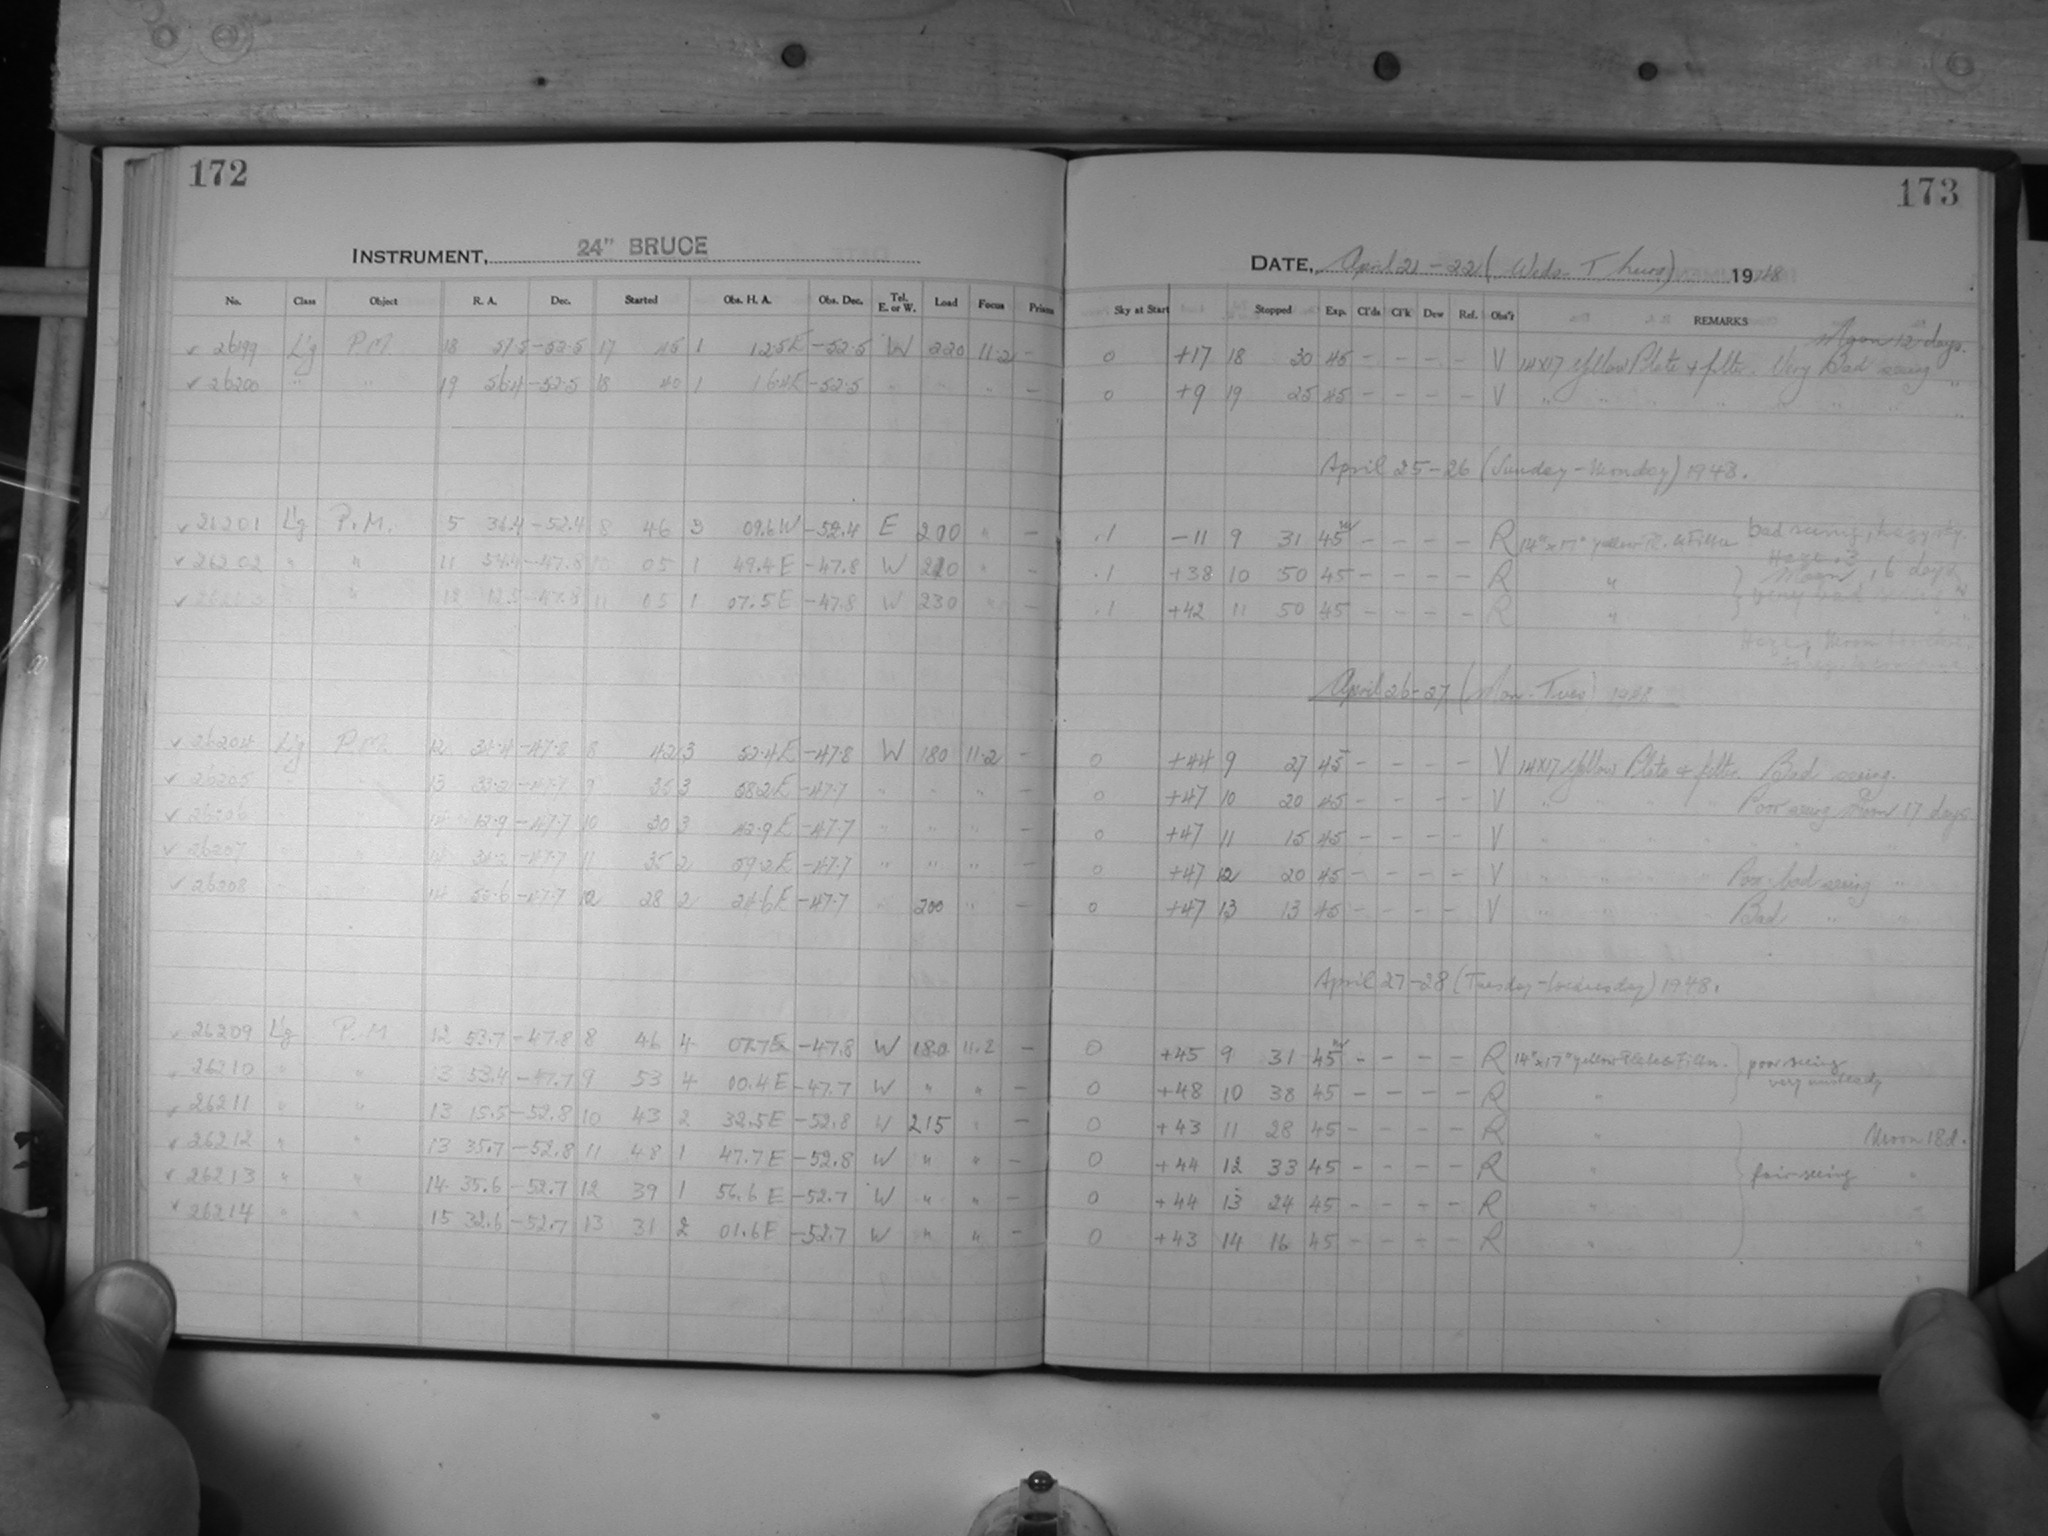 172
INSTRUMENT, 24" BRUCE
No. Class Object R. A. Dec. Started Obs. H. A. Obs. Dec. Tel. E. or W. Load Focus Prisms
26199 L'g P.M 18 51.5 -52.5 17 45 1 12.5E -52.5 W 220 11.2 -
26200 " " 19 56.4 -52.5 18 40 1 16.4E -52.5 " " " -
26201 L'g P.M. 5 36.4 -52.4 8 46 3 09.6W -52.4 E 200 " -
26202 " " 11 54.4 -47.8 10 05 1 49.4E -47.8 W 220 " -
" 12 12.5 -47.8 11 05 1 07.5E -47.8 W 230 -
26204 L'g P.M. 12 34.4 -47.8 8 42 3 52.4E -47.8 W 180 11.2 -
26205 13 33.2 -47.7 9 35 3 58.2E -47.7 " " " -
26206 14 12.9 -47.7 10 30 3 42.9E -47.7 " " " -
26207 14 34.2 -47.7 11 35 2 59.2E -47.7 " " " -
26208 14 52.6 -47.7 12 28 2 24.6E -47.7 " 200 " -
26209 L'g P.M 12 53.7 -47.8 8 46 4 07.7E -47.8 W 180 11.2 -
26210 13 53.4 -47.7 9 53 4 00.4E -47.7 W " " -
26211 " " 13 15.5 -52.8 10 43 2 32.5E -52.8 W 215 " -
26212 " " 13 35.7 -52.8 11 48 1 47.7E -52.8 W " " -
26213 " " 14 35.6 -52.7 12 39 1 56.6E -52.7 W " " -
26214 " " 15 32.6 -52.7 13 31 2 01.6E -52.7 W " " -
173
DATE, April 21-22 (Weds-Thurs) 1948
Sky at Start Stopped Exp. Cl'ds Cl'k Dew Ref. Obs'r REMARKS
Moon 12 days.
0 +17 18 30 45 - - - - V 14x17 yellow Plate & filter. Very Bad seeing "
0 +9 19 25 45 - - - - V " " " " " " " "
April 25-26 (Sunday-Monday) 1948.
.1 -11 9 31 45 - - - - R 14"x17" yellow Pl. & Filter bad seeing, hazy sky.
.1 +38 10 50 45 - - - - R " Moon, 16 days
.1 +42 11 50 45 - - - - R " very bad
Haze, Moon
April 26-27 (Mon-Tues) 1948
0 +44 9 27 45 - - - - V 14x17 yellow Plate & filter. Bad seeing.
0 +47 10 20 45 - - - - V " " " " Poor seeing moon 17 days
0 +47 11 15 45 - - - - V " " " " " " "
0 +47 12 20 45 - - - - V " " " " Poor-bad seeing "
0 +47 13 13 45 - - - - V " " " " Bad " "
April 27-28 (Tuesday-Wednesday) 1948.
0 +45 9 31 45 - - - - R 14"x17" yellow Plate & Filter. poor seeing
very unsteady
0 +48 10 38 45 - - - - R "
0 +43 11 28 45 - - - - R " Moon 18d.
0 +44 12 33 45 - - - - R " fair seeing "
0 +44 13 24 45 - - - - R " "
0 +43 14 16 45 - - - - R " "